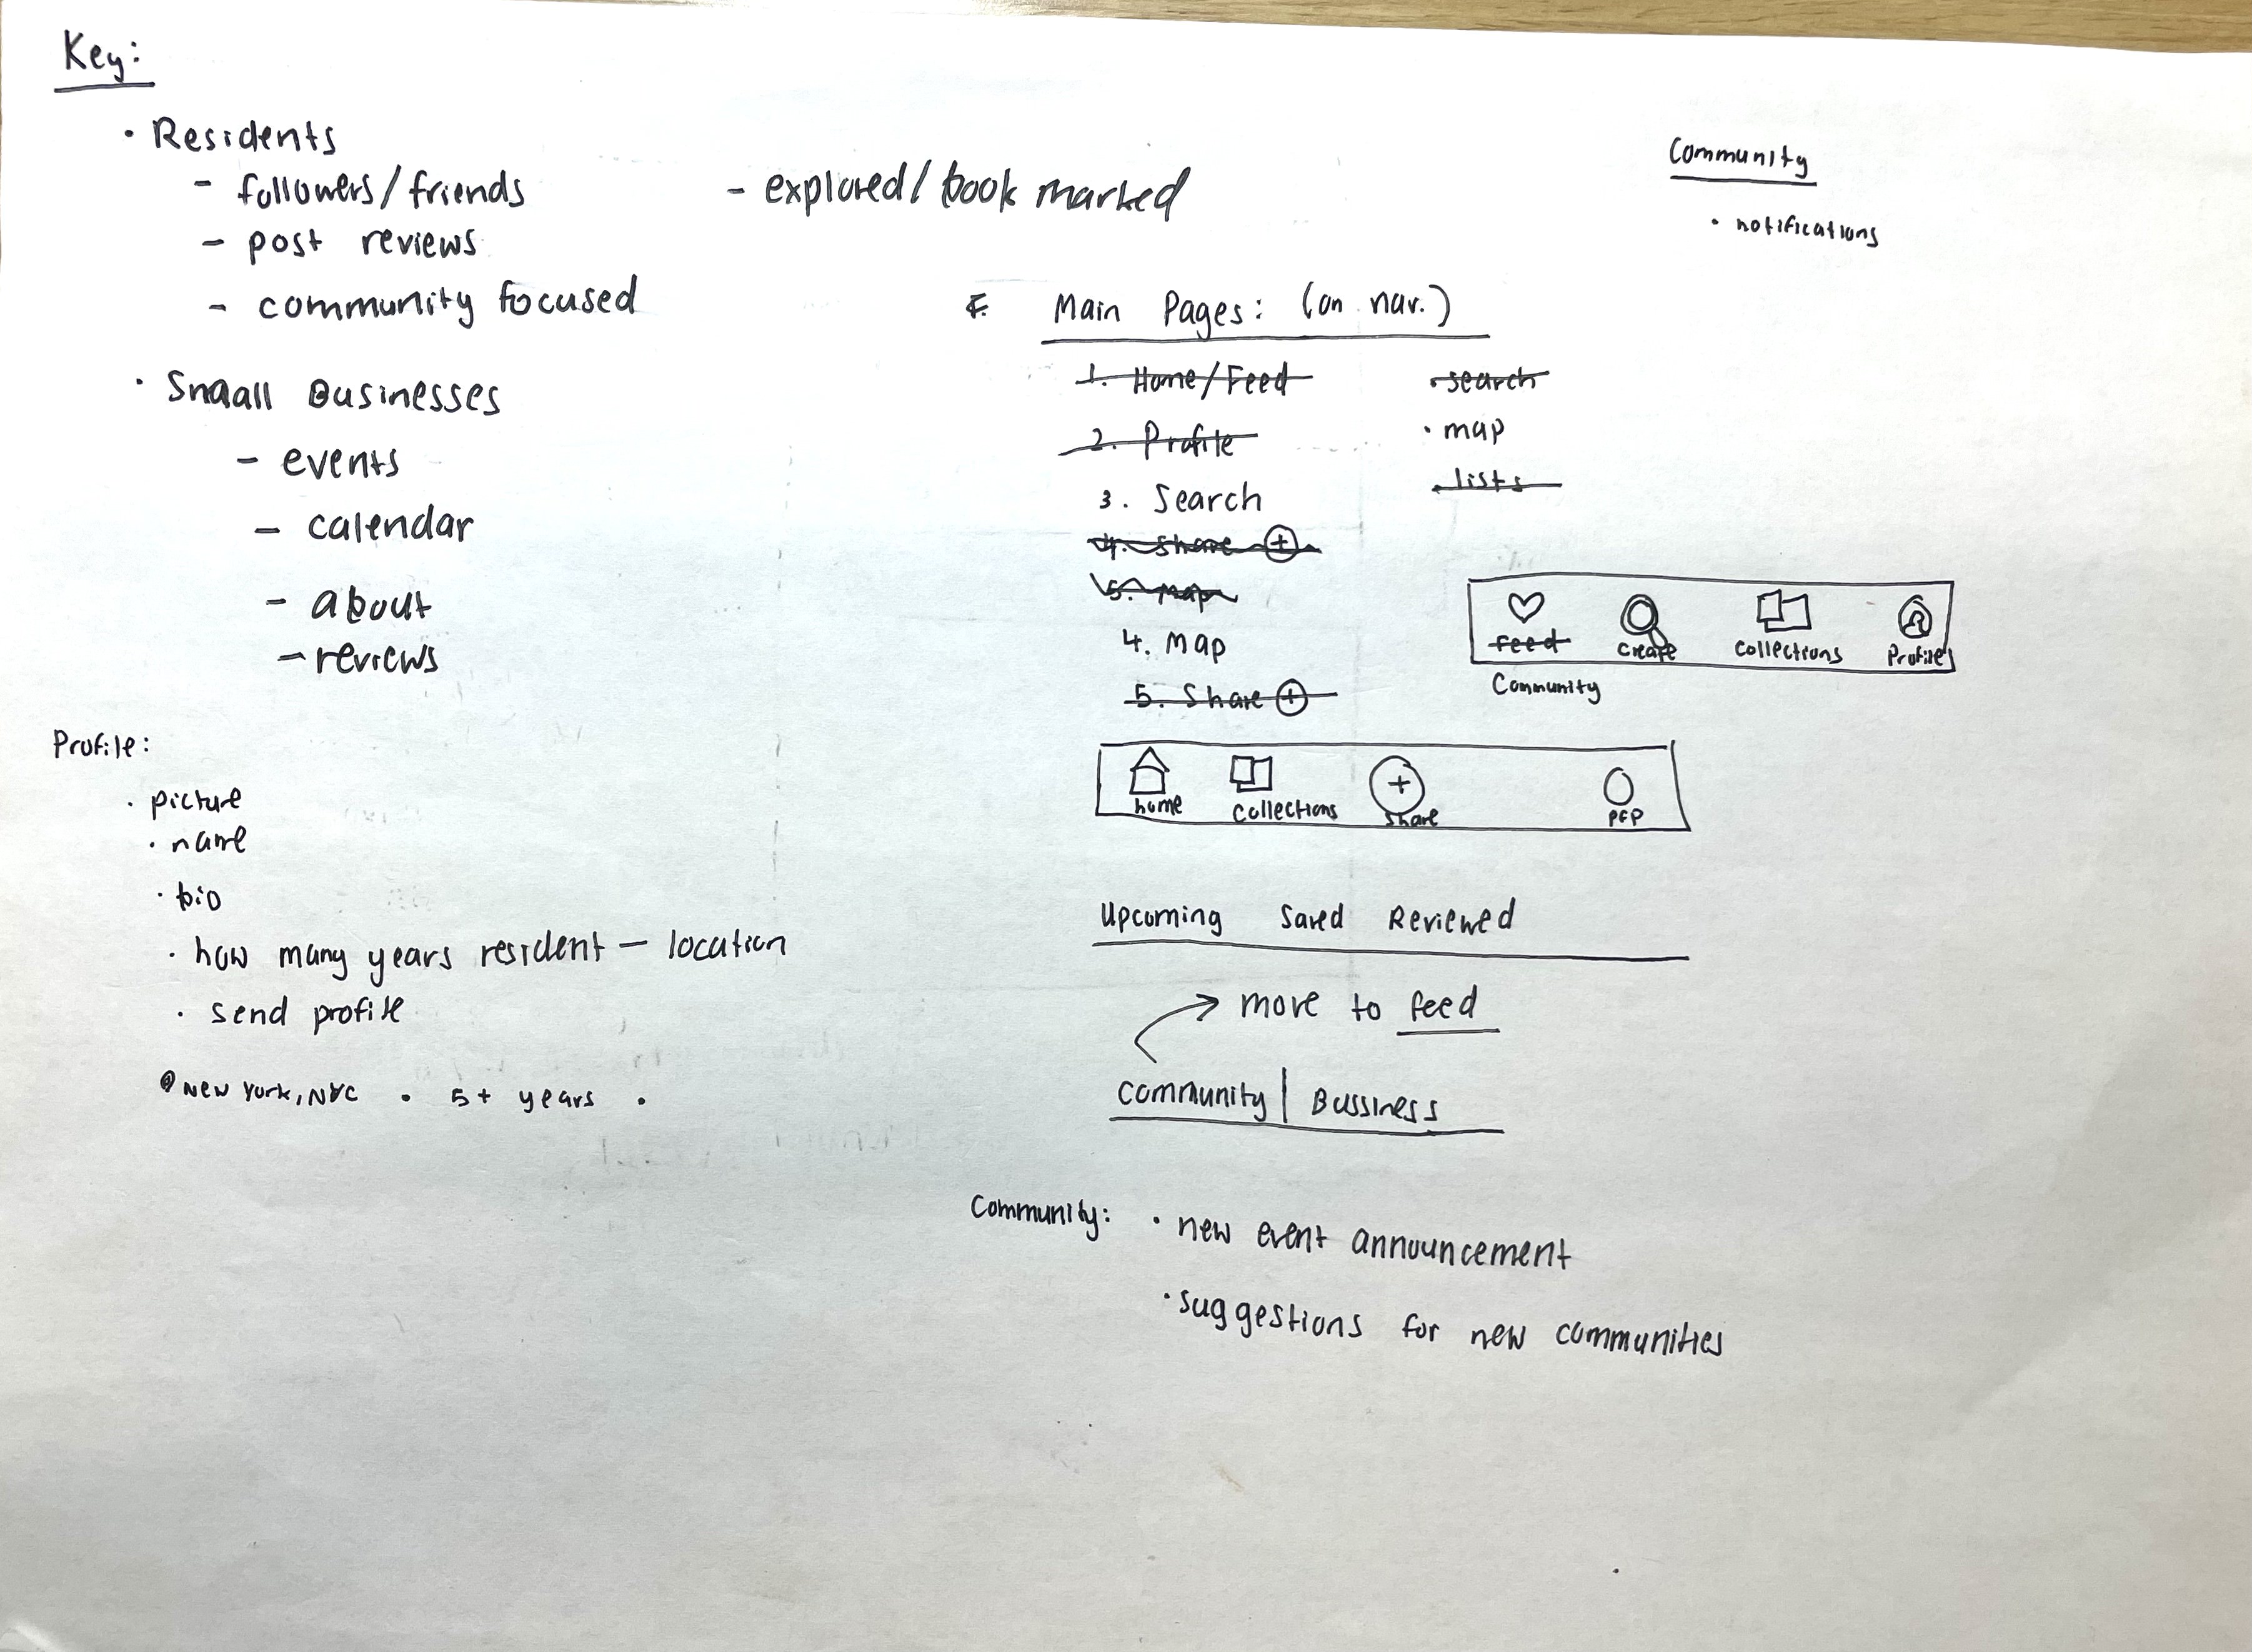 Key:
• Residents
- followers/friends
- post reviews
- community focused
- explored/book marked
• Small Businesses
- events
- calendar
- about
- reviews
Profile:
• picture
• name
• bio
• how many years resident - location
• send profile
New York, NYC • 5+ years •
Community
• notifications
Main Pages: (on nav.)
1. Home/Feed
2. Profile
3. Search
4. Share +
5. Map
4. Map
5. Share +
• search
• map
• lists
Feed Create Collections Profile
Community
home Collections Share PFP
Upcoming Saved Reviewed
→ move to feed
Community | Bussiness
Community: • new event announcement
• suggestions for new communities